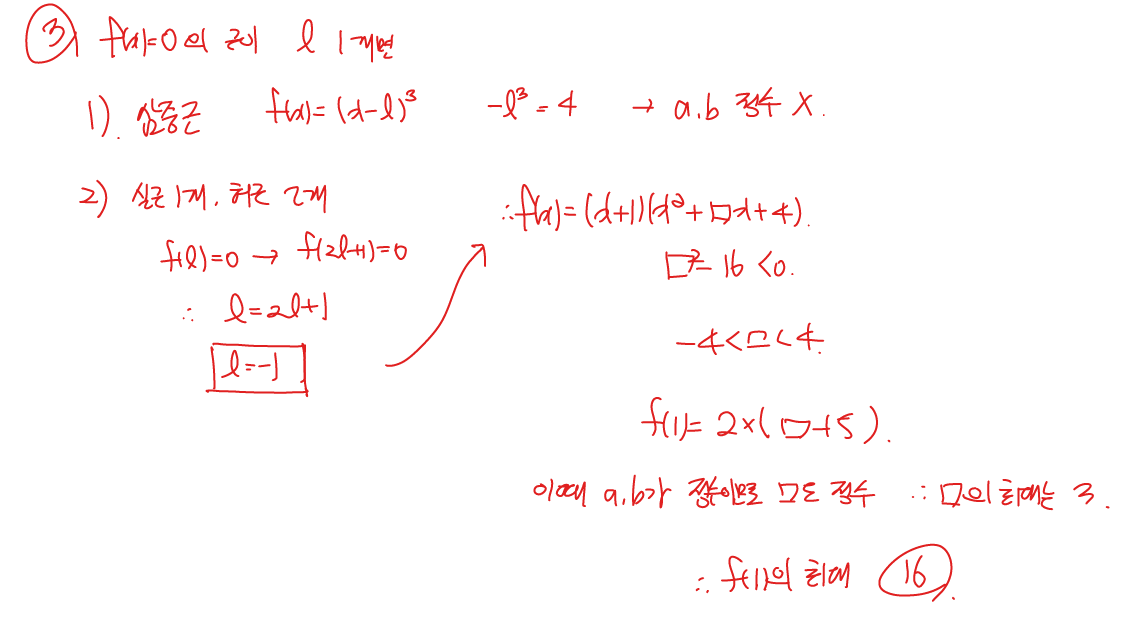 ③ f(x)=0의 근이 l 1개면
1). 삼중근 f(x)=(x-l)³ -l³=4 → a,b 정수 X.
2) 실근 1개, 허근 2개
f(l)=0 → f(2l+1)=0
∴ l=2l+1
l=-1
∴f(x)=(x+1)(x²+□x+4).
□²-16<0.
-4<□<4.
f(1)=2×(□+5).
이때 a,b가 정수이므로 □도 정수 ∴ □의 최대는 3.
∴ f(1)의 최대 16.